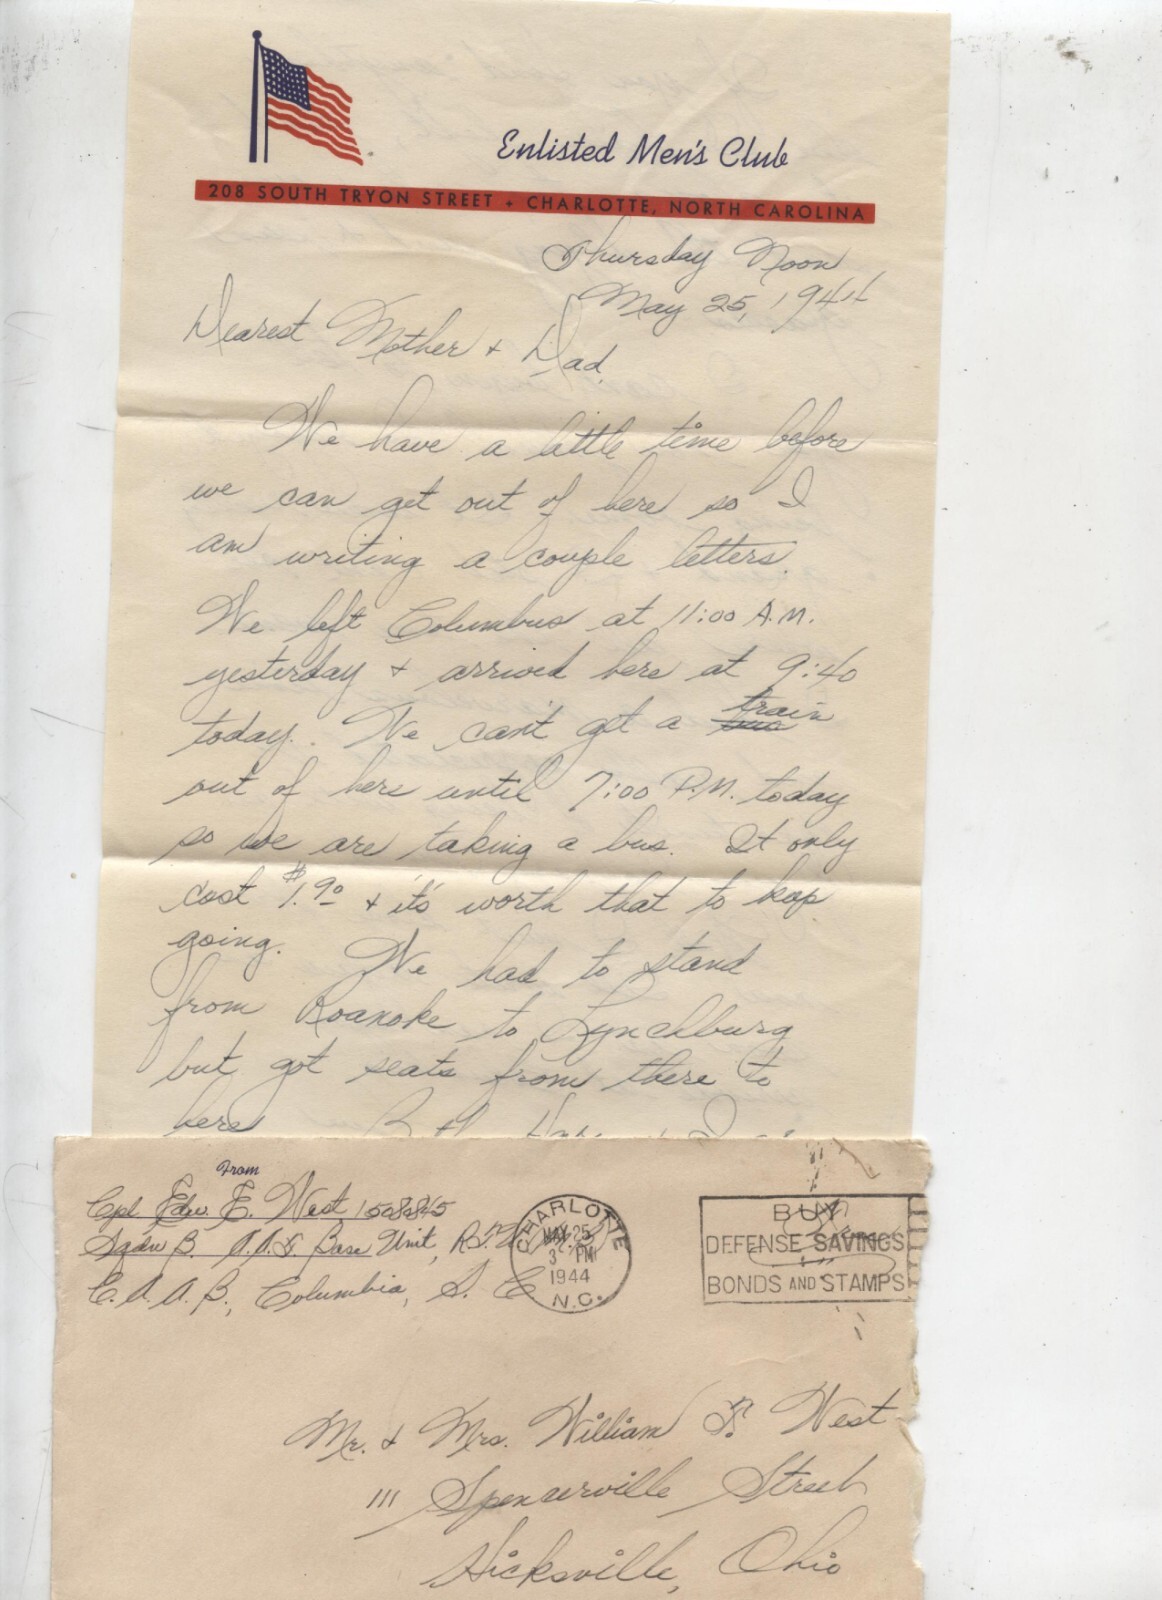 Enlisted Men's Club
208 SOUTH TRYON STREET + CHARLOTTE, NORTH CAROLINA
Thursday Noon
May 25, 1944
Dearest Mother + Dad,
We have a little time before
we can get out of here so I
am writing a couple letters.
We left Columbus at 11:00 A.M.
yesterday + arrived here at 9:40
today. We can't get a bus train
out of here until 7:00 P.M. today
so we are taking a bus. It only
cost $1.90 + it's worth that to keep
going. We had to stand
from Roanoke to Lynchburg
but got seats from there to
here
From
Cpl. Edw. E. West
Sqdn B. A.A.F. Base Unit,
C.A.A.B., Columbia, S. C
CHARLOTTE
MAY 25
3 PM
1944
N.C.
BUY
DEFENSE SAVINGS
BONDS AND STAMPS
Mr. + Mrs. William West
111 Spencerville Street
Hicksville, Ohio